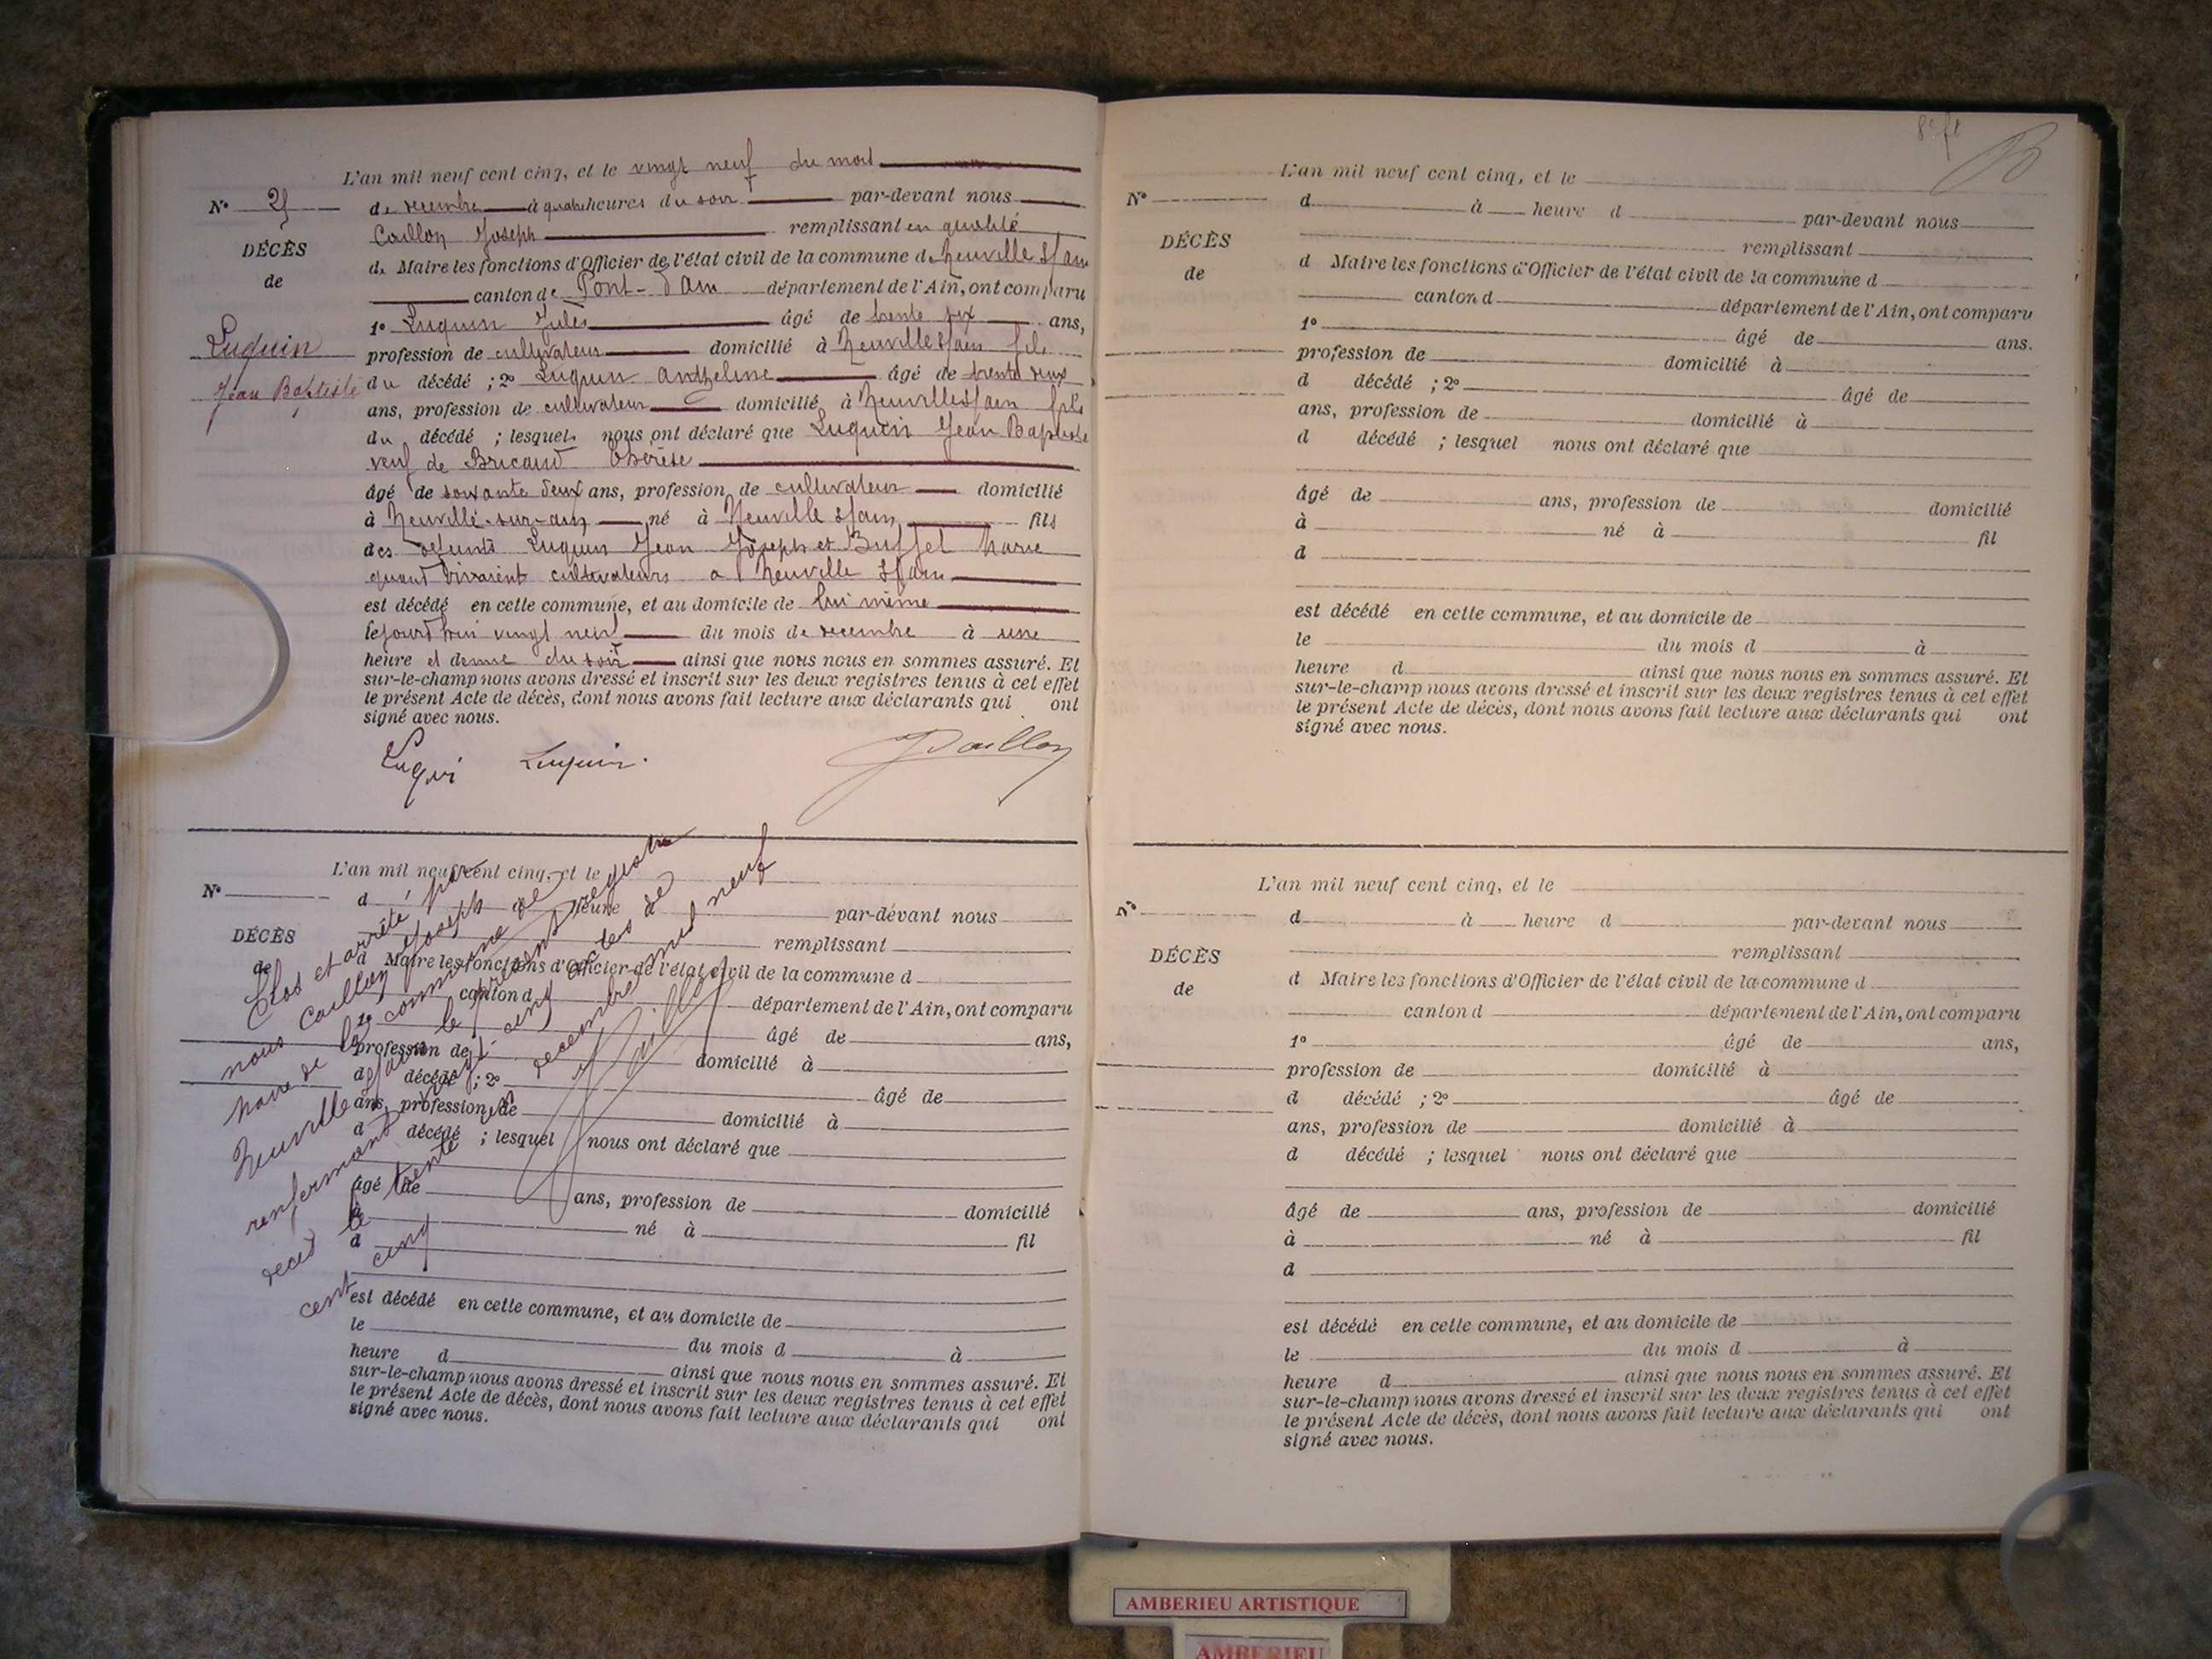 L'an mil neuf cent cinq, et le vingt neuf du mois
N° 25 de decembre à quatre heures du soir par-devant nous
Caillon Joseph remplissant en qualité
DÉCÈS
de Maire les fonctions d'Officier de l'état civil de la commune de Neuville s/ain
de
canton de Pont-d'Ain département de l'Ain, ont comparu
1° Luquin Jules âgé de trente six ans,
Luquin
profession de cultivateur domicilié à Neuville s/ain fils
Jean Baptiste
du décédé ; 2° Luquin Anthelme âgé de trente deux
ans, profession de cultivateur domicilié à Neuville s/ain fils
du décédé ; lesquels nous ont déclaré que Luquin Jean Baptiste
veuf de Bricaud Thérèse
âgé de soixante deux ans, profession de cultivateur domicilié
à Neuville-sur-ain né à Neuville s/ain fils
des defunts Luquin Jean Joseph et Buffet Marie
quand vivaient cultivateurs a Neuville s/ain
est décédé en cette commune, et au domicile de lui même
lejourd'hui vingt neuf du mois de decembre à une
heure et demie du soir ainsi que nous nous en sommes assuré. Et
sur-le-champ nous avons dressé et inscrit sur les deux registres tenus à cet effet
le présent Acte de décès, dont nous avons fait lecture aux déclarants qui ont
signé avec nous.
Luqui Luquin. JCaillon
L'an mil neuf cent cinq, et le
N° d heure d par-devant nous
DÉCÈS
remplissant
de
d Maire les fonctions d'Officier de l'état civil de la commune d
canton d département de l'Ain, ont comparu
1° âgé de ans,
profession de domicilié à
d décédé ; 2° âgé de
ans, profession de domicilié à
d décédé ; lesquel nous ont déclaré que
âgé de ans, profession de domicilié
à né à fil
d
est décédé en cette commune, et au domicile de
le du mois d à
heure d ainsi que nous nous en sommes assuré. Et
sur-le-champ nous avons dressé et inscrit sur les deux registres tenus à cet effet
le présent Acte de décès, dont nous avons fait lecture aux déclarants qui ont
signé avec nous.
Clos et arrêté par
nous Caillon Joseph
Maire de la commune de
Neuville s/ain le présent registre
renfermant vingt-cinq actes de
décès le trente un decembre mil neuf
cent cinq
JCaillon
8e ft
L'an mil neuf cent cinq, et le
N° d à heure d par-devant nous
DÉCÈS
remplissant
de
d Maire les fonctions d'Officier de l'état civil de la commune d
canton d département de l'Ain, ont comparu
1° âgé de ans.
profession de domicilié à
d décédé ; 2° âgé de
ans, profession de domicilié à
d décédé ; lesquel nous ont déclaré que
âgé de ans, profession de domicilié
à né à fil
d
est décédé en cette commune, et au domicile de
le du mois d à
heure d ainsi que nous nous en sommes assuré. Et
sur-le-champ nous avons dressé et inscrit sur les deux registres tenus à cet effet
le présent Acte de décès, dont nous avons fait lecture aux déclarants qui ont
signé avec nous.
L'an mil neuf cent cinq, et le
N° d à heure d par-devant nous
DÉCÈS
remplissant
de
d Maire les fonctions d'Officier de l'état civil de la commune d
canton d département de l'Ain, ont comparu
1° âgé de ans,
profession de domicilié à
d décédé ; 2° âgé de
ans, profession de domicilié à
d décédé ; lesquel nous ont déclaré que
âgé de ans, profession de domicilié
à né à fil
d
est décédé en cette commune, et au domicile de
le du mois d à
heure d ainsi que nous nous en sommes assuré. Et
sur-le-champ nous avons dressé et inscrit sur les deux registres tenus à cet effet
le présent Acte de décès, dont nous avons fait lecture aux déclarants qui ont
signé avec nous.
AMBERIEU ARTISTIQUE
AMBERIEU